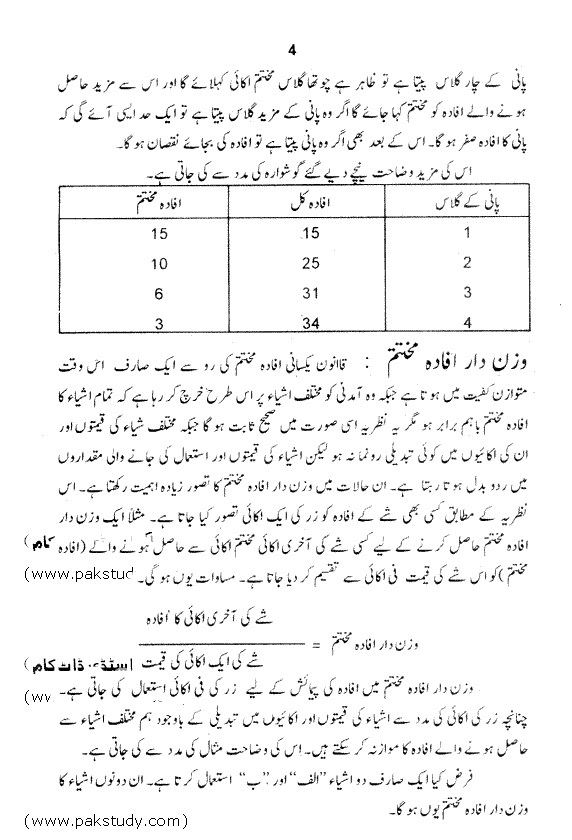 4
پانی کے چار گلاس پیتا ہے تو ظاہر ہے چوتھا گلاس مختتم اکائی کہلائے گا اور اس سے مزید حاصل
ہونے والے افادہ کو مختتم کہا جائے گا اگر وہ پانی کے مزید گلاس پیتا ہے تو ایک حد ایسی آئے گی کہ
پانی کا افادہ صفر ہو گا۔ اس کے بعد بھی اگر وہ پانی پیتا ہے تو افادہ کی بجائے نقصان ہو گا۔
اس کی مزید وضاحت نیچے دیے گئے گوشوارہ کی مدد سے کی جاتی ہے۔
پانی کے گلاس افادہ کل افادہ مختتم
1 15 15
2 25 10
3 31 6
4 34 3
وزن دار افادہ مختتم : قانون یکسانی افادہ مختتم کی رو سے ایک صارف اس وقت
متوازن کیفیت میں ہوتا ہے جبکہ وہ آمدنی کو مختلف اشیاء پر اس طرح خرچ کر رہا ہے کہ تمام اشیاء کا
افادہ مختتم باہم برابر ہو مگر یہ نظریہ اسی صورت میں صحیح ثابت ہو گا جبکہ مختلف شیاء کی قیمتوں اور
ان کی اکائیوں میں کوئی تبدیلی رونما نہ ہو لیکن اشیاء کی قیمتوں اور استعمال کی جانے والی مقداروں
میں ردو بدل ہوتا رہتا ہے۔ ان حالات میں وزن دار افادہ مختتم کا تصور زیادہ اہمیت رکھتا ہے۔ اس
نظریہ کے مطابق کسی بھی شے کے افادہ کو زر کی ایک اکائی تصور کیا جاتا ہے۔ مثلاً ایک وزن دار
افادہ مختتم حاصل کرنے کے لیے کسی شے کی آخری اکائی مختتم اکائی سے حاصل ہونے والے (افادہ کام )
مختتم )کو اس شے کی قیمت فی اکائی سے تقسیم کر دیا جاتا ہے۔ مساوات یوں ہو گی۔ (www.pakstud
شے کی آخری اکائی کا افادہ
وزن دار افادہ مختتم =
شے کی ایک اکائی کی قیمت اسٹڈی ڈاٹ کام )
وزن دار افادہ مختتم میں افادہ کی پیمائش کے لیے زر کی فی اکائی استعمال کی جاتی ہے۔ (wv
چنانچہ زر کی اکائی کی مدد سے اشیاء کی قیمتوں اور اکائیوں میں تبدیلی کے باوجود ہم مختلف اشیاء سے
حاصل ہونے والے افادہ کا موازنہ کر سکتے ہیں۔ اس کی وضاحت مثال کی مدد سے کی جاتی ہے۔
فرض کیا ایک صارف دو اشیاء "الف" اور "ب" استعمال کرتا ہے۔ ان دونوں اشیاء کا
وزن دار افادہ مختتم یوں ہو گا۔
(www.pakstudy.com)